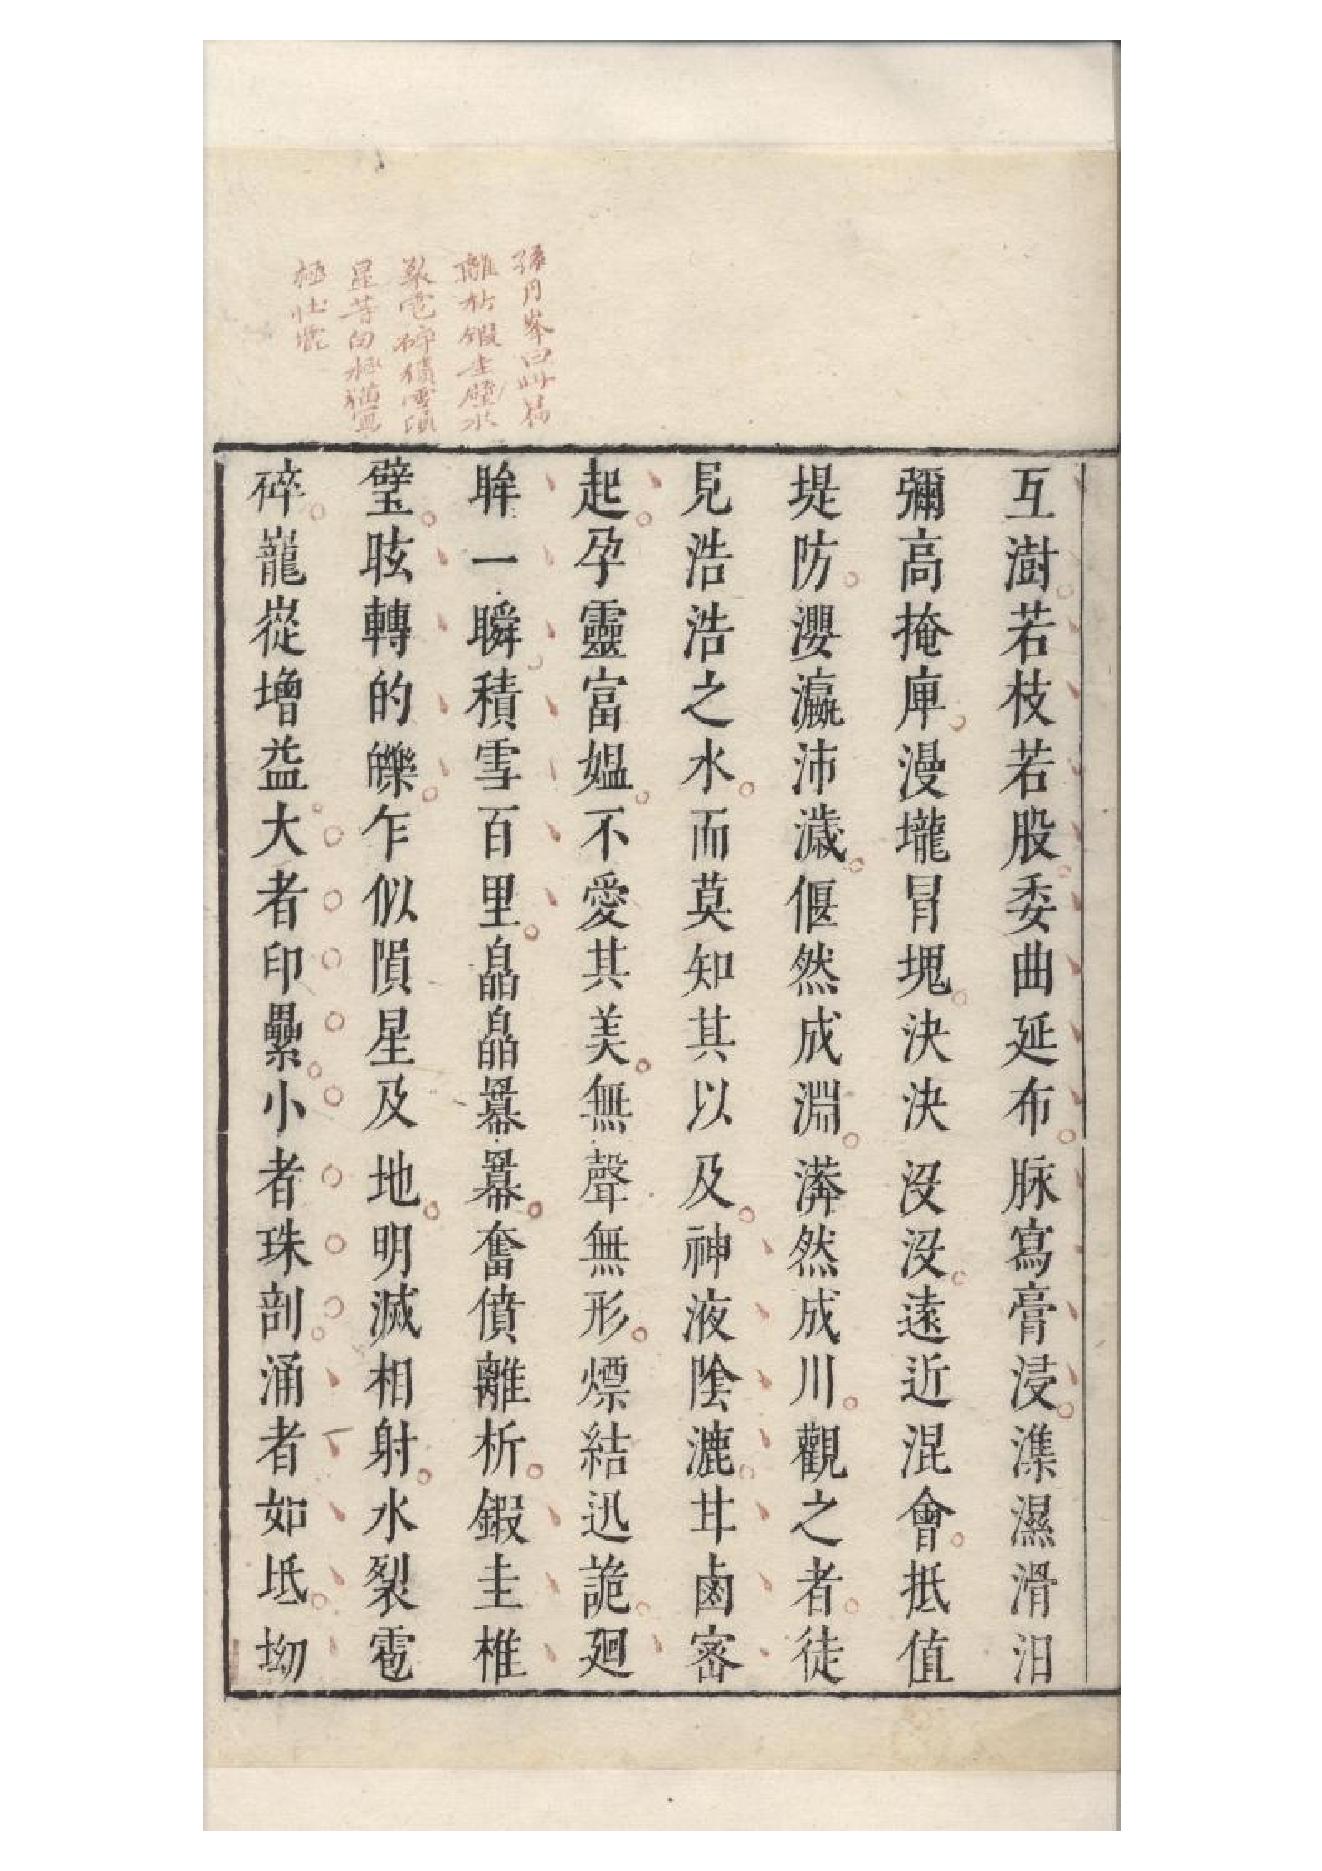 孫月峯曰此易
離析鍜圭璧水
裂雹碎積雪隕
星等句極猶寫
極壯麗
互澍若枝若股委曲延布脉寫膏浸潗濕滑汨
彌高掩庳漫壠冒塊決決没没遠近混會抵值
堤防瀴瀛沛濊偃然成淵漭然成川觀之者徒
見浩浩之水而莫知其以及神液陰漉甘鹵宻
起孕靈富媪不愛其美無聲無形熛結迅詭廻
眸一瞬積雪百里皛皛羃羃奮僨離析鍜圭椎
璧眩轉的皪乍似隕星及地明滅相射水裂雹
碎巃嵸增益大者印纍小者珠剖涌者如坻坳